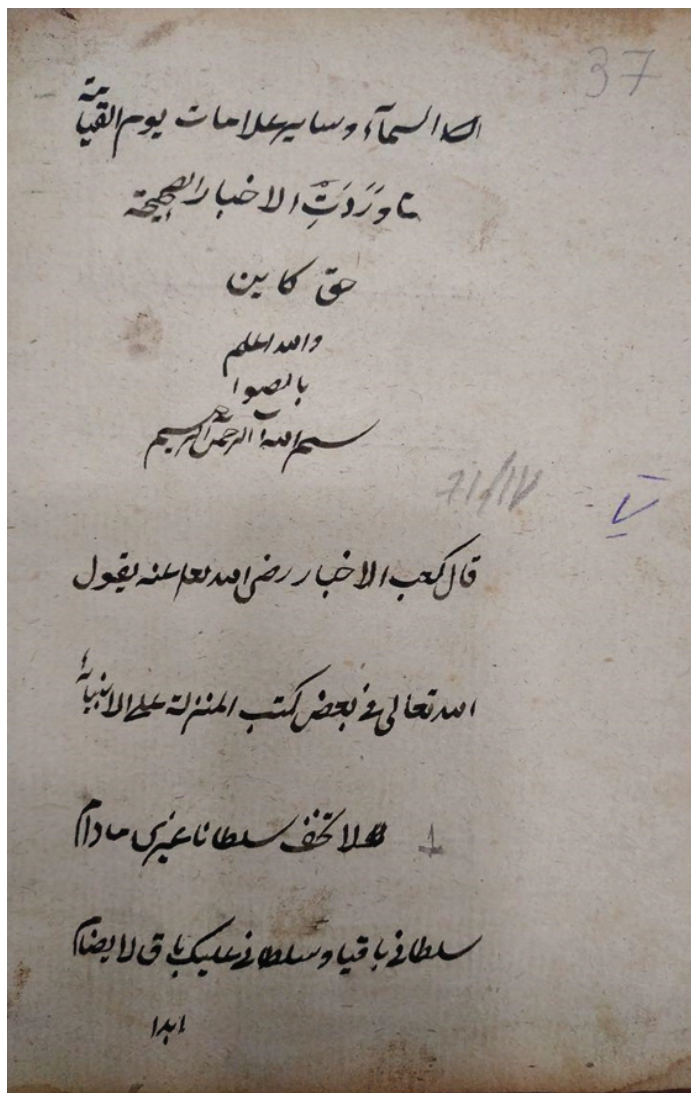 37
السمآء وساير علامات يوم القيامة
ما وَرَدَتِ الاخبار الصحيحة
حق كاين
والله اعلم
بالصوا
بسم الله الرحمن الرحيم
71/17
قال كعب الاخبار رضى الله تعا عنه يقول
الله تعالى فى بعض كتب المنزلة على الانبياء
لا تخف سلطانا غيرى مادام
سلطانى باقيا وسلطانى عليك باق لا يضام
ابدا